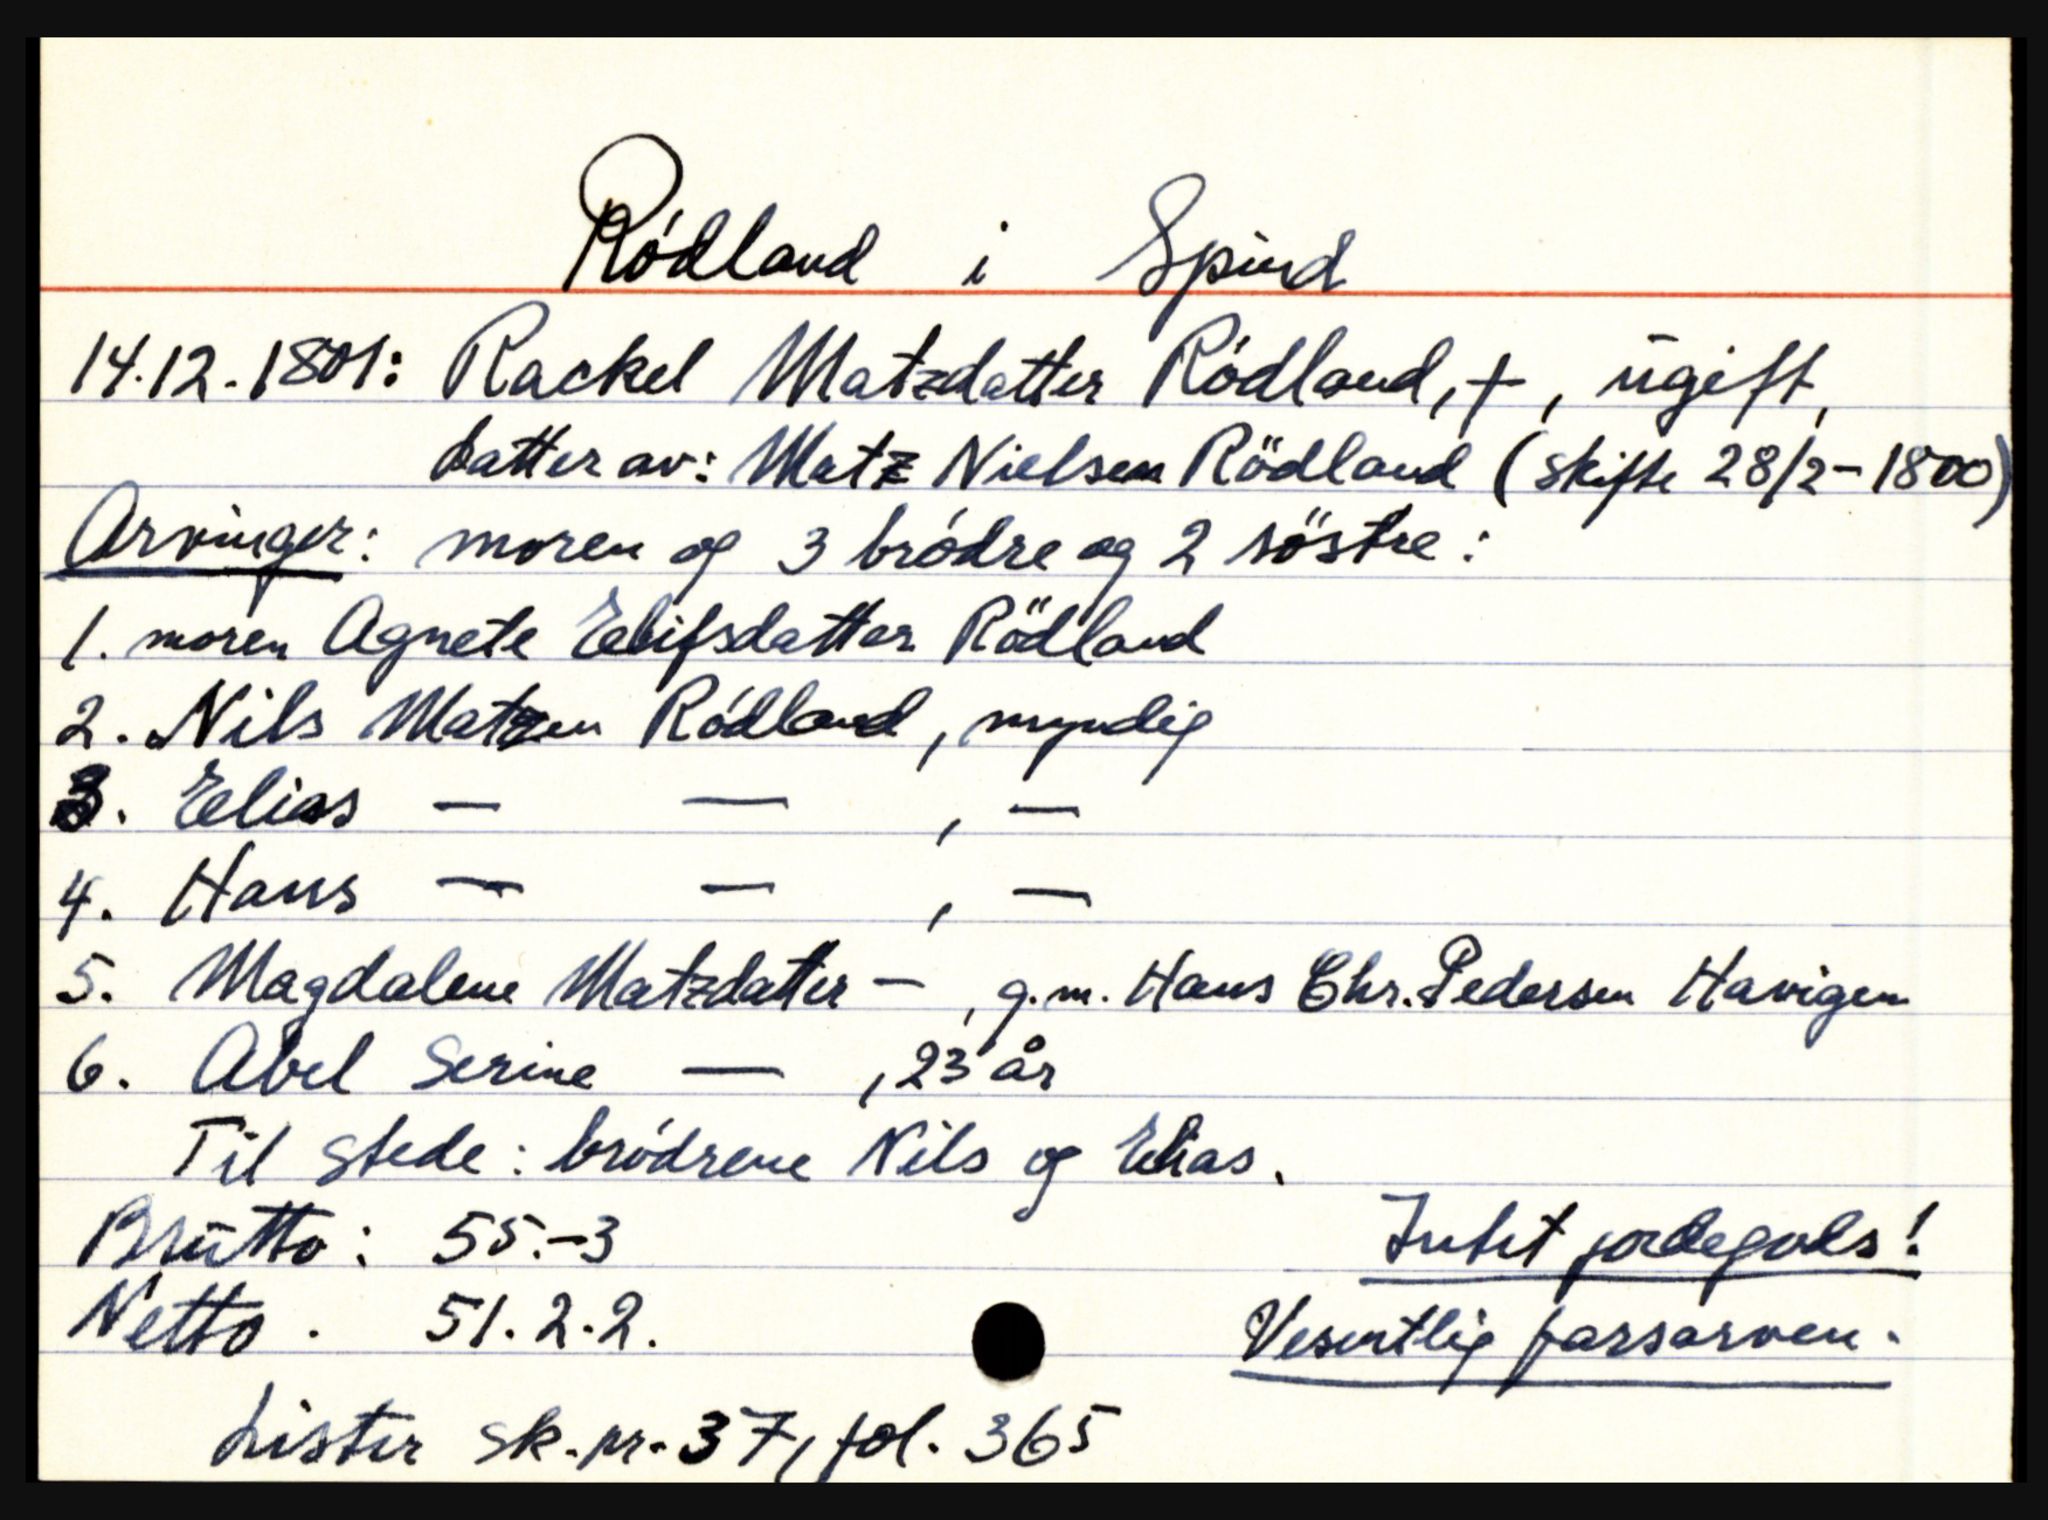 Rödland i Spind
14.12.1801: Rackel Matzdatter Rödland, +, ugift,
datter av: Matz Nielsen Rödland (skifte 28/2-1800)
Arvinger: moren og 3 brödre og 2 söstre:
1. moren Agnete Eelifsdatter Rödland
2. Nils Matzen Rödland, myndig
3. Eelias — — , —
4. Hans — — , —
5. Magdalene Matzdatter — , g.m. Hans Chr. Pedersen Havigen
6. Abel Serine — , 23 år
Til stede: brödrene Nils og Elias.
Brutto: 55.-3
Intet jordegods!
Netto. 51.2.2.
Vesentlig farsarven.
Lister sk.pr. 37, fol. 365